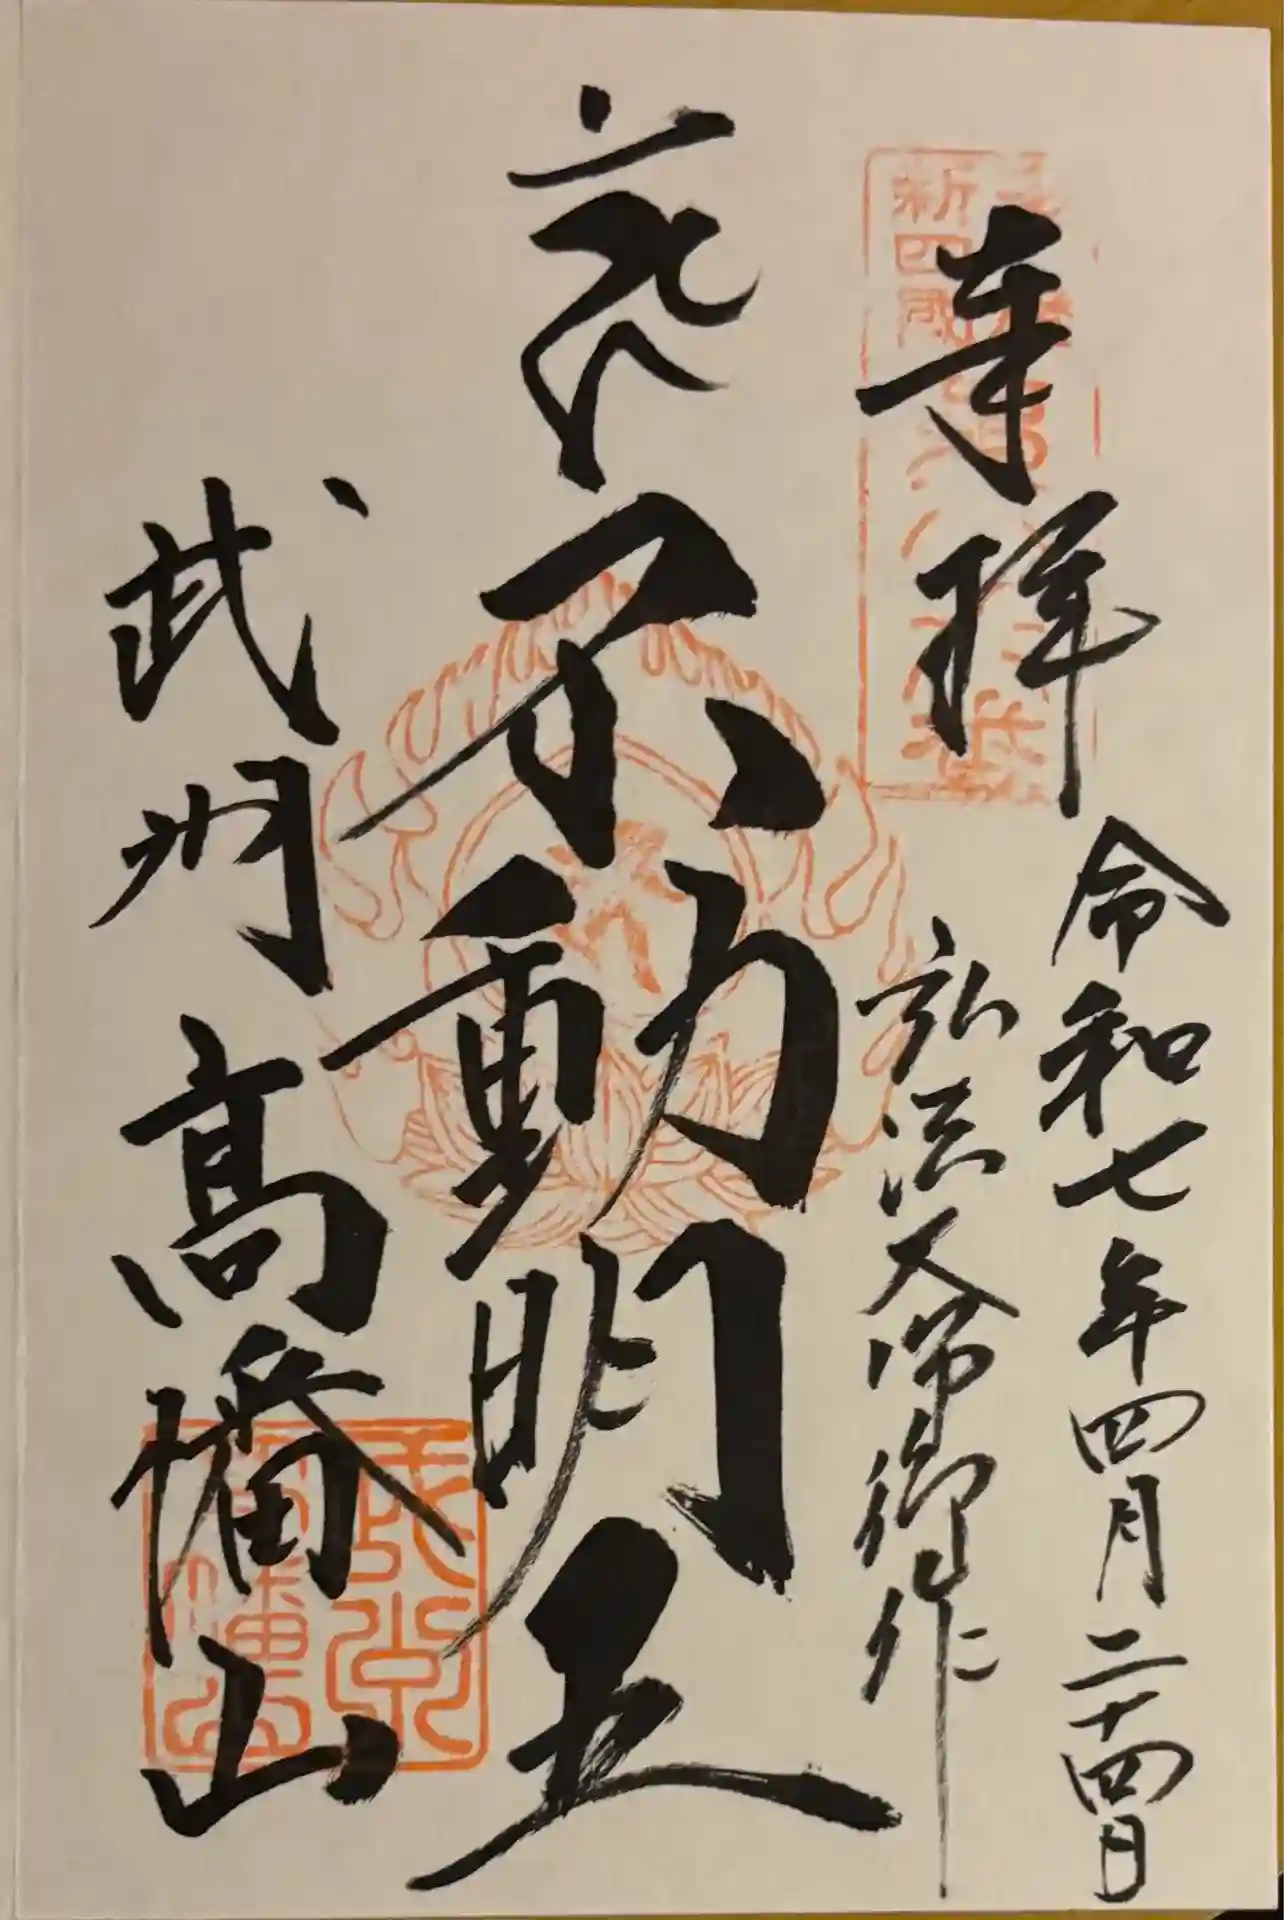 奉拝
新四国
令和七年四月二十四日
弘法大師御作
不動明王
武州
高幡山